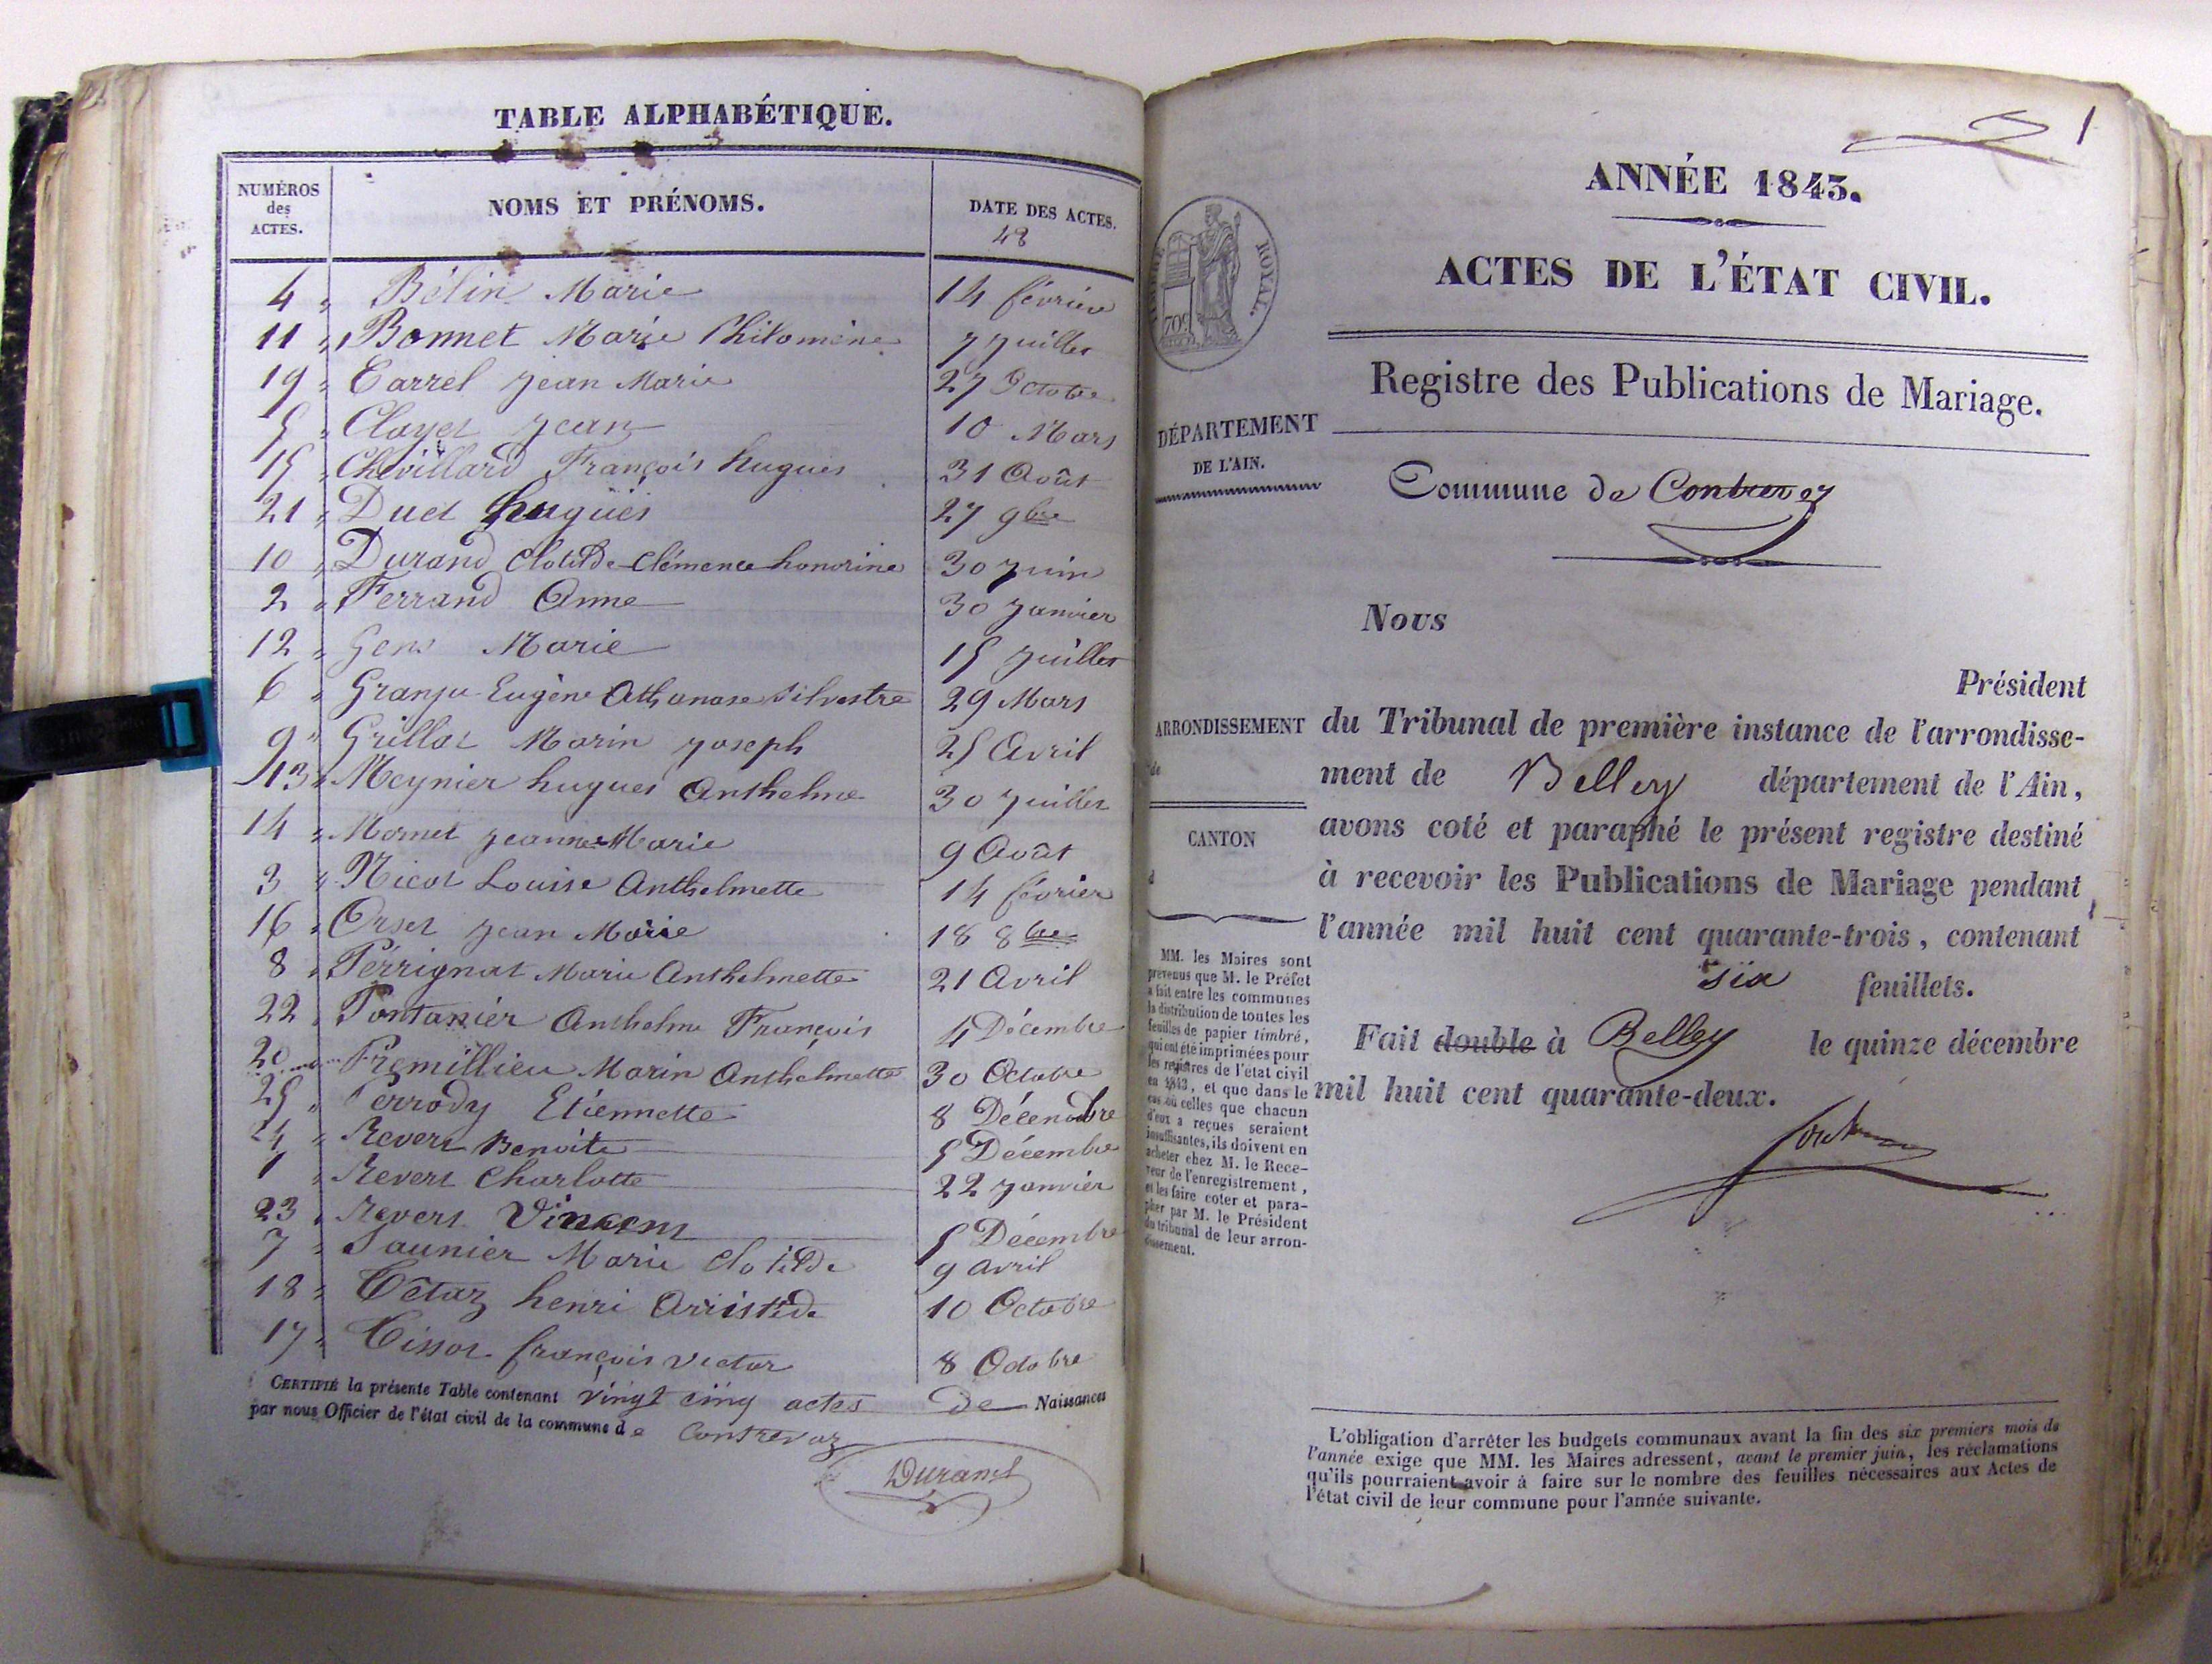 TABLE ALPHABÉTIQUE.
NUMÉROS des ACTES.
NOMS ET PRÉNOMS.
DATE DES ACTES.
48
4 " Bélin Marie 14 février
11 " Bonnet Marie Philomène 7 Juillet
19 " Carrel Jean Marie 27 Octobre
5 " Cloyet Jean 10 Mars
15 " Chevillard François hugues 31 Août
21 " Duet hugues 27 9bre
10 " Durand Clotilde Clémence honorine 30 Juin
2 " Ferrand Anne 30 Janvier
12 " Gens Marie 15 Juillet
6 " Granju Eugène Athanase Silvestre 29 Mars
9 " Grillot Marin Joseph 25 Avril
13 " Meynier hugues Anthelme 30 Juillet
14 " Mornet Jeanne Marie 9 Août
3 " Nicot Louise Anthelmette 14 février
16 " Orset Jean Marie 18 8bre
8 " Pérrignat Marie Anthelmette 21 Avril
22 " Pontanier Anthelme François 4 Décembre
20 " Premillieu Marin Anthelmette 30 Octobre
25 " Perrody Etiennette 8 Décembre
24 " Revert Benoite 5 Décembre
1 " Revert Charlotte 22 Janvier
23 " Revert Vincent 5 Décembre
7 " Saunier Marie Clotilde 9 avril
18 " Tétaz henri Arristide 10 Octobre
17 " Tissot françois Victor 8 Octobre
CERTIFIÉ la présente Table contenant vingt cinq actes de Naissances
par nous Officier de l'état civil de la commune de Contrevoz
Durand
1
ANNÉE 1843.
ACTES DE L'ÉTAT CIVIL.
TIMBRE ROYAL.
70c
Registre des Publications de Mariage.
DÉPARTEMENT
DE L'AIN.
Commune de Contrevoz
Nous
Président
ARRONDISSEMENT
de
du Tribunal de première instance de l'arrondisse-
ment de Belley département de l'Ain,
avons coté et paraphé le présent registre destiné
à recevoir les Publications de Mariage pendant
l'année mil huit cent quarante-trois, contenant
six feuillets.
Fait double à Belley le quinze décembre
mil huit cent quarante-deux.
CANTON
d
MM. les Maires sont
prévenus que M. le Préfet
a fait entre les communes
la distribution de toutes les
feuilles de papier timbré,
qui ont été imprimées pour
les registres de l'état civil
en 1843, et que dans le
cas où celles que chacun
d'eux a reçues seraient
insuffisantes, ils doivent en
acheter chez M. le Rece-
veur de l'enregistrement,
et les faire coter et para-
pher par M. le Président
du tribunal de leur arron-
dissement.
L'obligation d'arrêter les budgets communaux avant la fin des six premiers mois de
l'année exige que MM. les Maires adressent, avant le premier juin, les réclamations
qu'ils pourraient avoir à faire sur le nombre des feuilles nécessaires aux Actes de
l'état civil de leur commune pour l'année suivante.